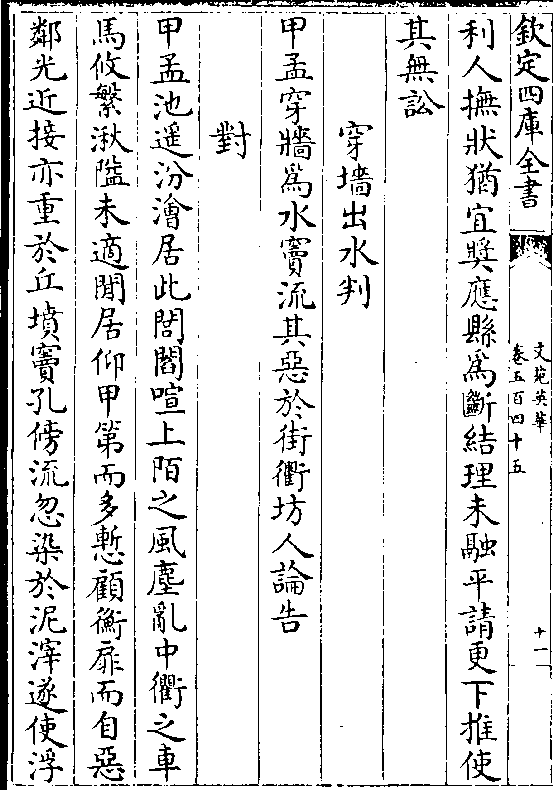 欽定四庫全書
文苑英華
卷五百四十五
十一
利人撫狀猶宜奬應縣為斷結理未融平請更下推使
其無訟
穿墻出水判
甲孟穿牆為水竇流其惡於街衢坊人論告
對
甲孟池遥汾澮居此閭閻喧上陌之風塵亂中衢之車
馬攸繁湫隘未適閒居仰甲第而多慙顧衡扉而自惡
鄰光近接亦重於丘墳竇孔傍流忽染於泥滓遂使浮